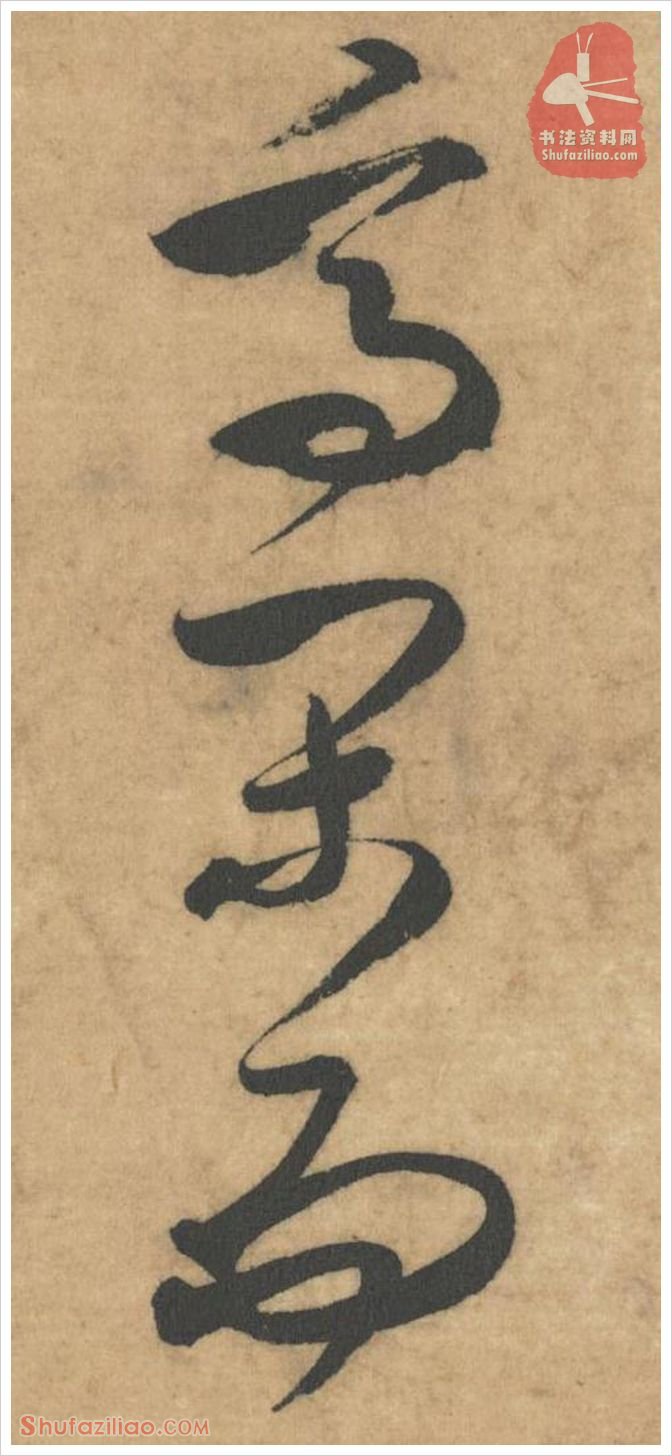 高閑
书法资料网
Shufaziliao.com
Shufaziliao.COM